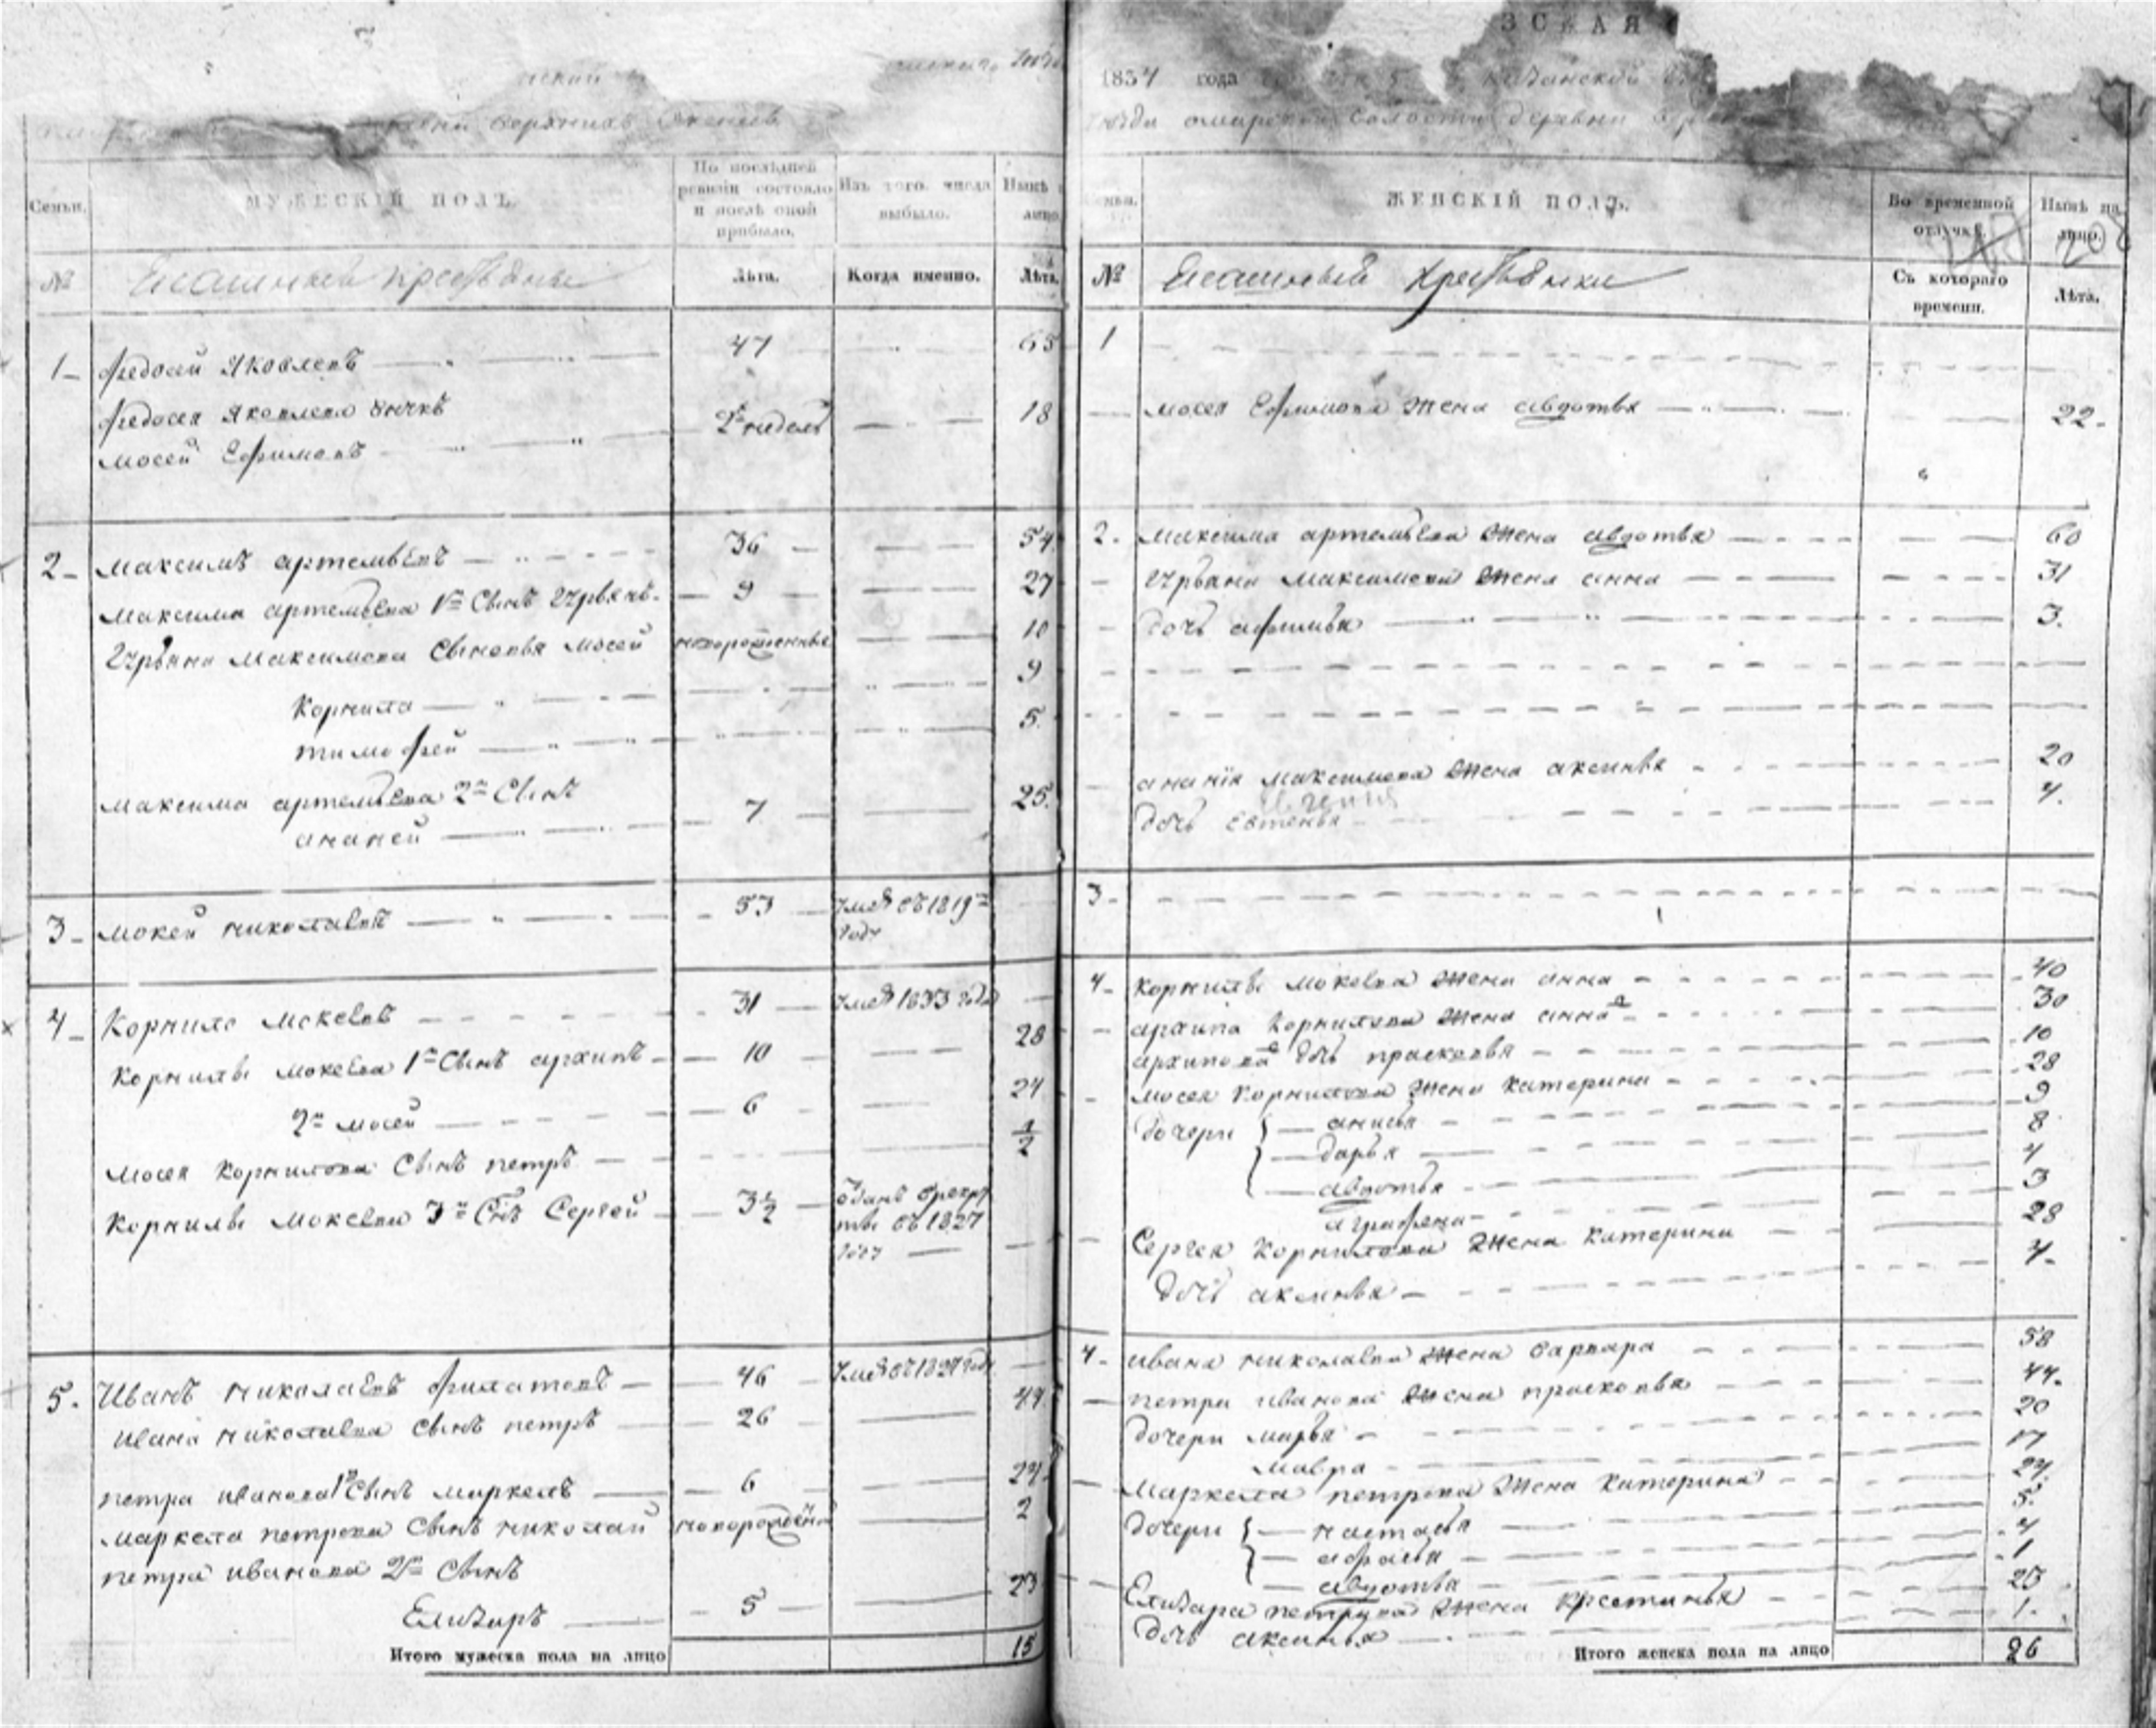 деревни верхнихъ
Семьи.
МУЖЕСКІЙ ПОЛЪ.
По послѣдней ревизіи состояло и послѣ оной прибыло.
Изъ того числа выбыло.
Нынѣ лицо.
№
крестьяне
Лѣта.
Когда именно.
Лѣта.
1 Федосей Яковлевъ 47 65
Федосея Яковлева внукъ
мосей Ефимовъ недель 18
2 максимъ артемьевъ 36 54
максима артемьева 1й сынъ 9 27
максимова сыновья мосей новорожденные 10
Корнила 9
тимофей 5
максима артемьева 2й сынъ
ананей 7 25
3 мокей николаевъ 53 умеръ въ 1819м году
4 Корнило мокеевъ 31 умеръ 1833 года
Корнилы мокеева 1й сынъ архипъ 10 28
2й мосей 6 24
мосея корнилова сынъ петръ 1/2
корнилы мокеева 3й сынъ Сергей 3 1/2 отданъ в рекруты въ 1827 году
5 Иванъ николаевъ филатовъ 46 умеръ въ 1827 году
ивана николаева сынъ петръ 26 44
петра иванова 1й сынъ маркелъ 6 24
маркела петрова сынъ николай новорожденной 2
петра иванова 2й сынъ
Елизаръ 5 23
Итого мужеска пола на лицо 15
ЗСКАЯ
1834 года казанской
уезда омарской волости деревни
ЖЕНСКІЙ ПОЛЪ.
Во временной отлучкѣ.
Нынѣ на лицо.
№
крестьянки
Съ котораго времени.
Лѣта.
1
мосея Ефимова жена авдотья 22
2 максима артемьева жена авдотья 60
максимова жена анна 31
дочь афимья 3
ананія максимова жена аксинья 20
дочь евгенья 4
3
4 корнилы мокеева жена анна 40
архипа корнилова жена анна 30
архипова дочь прасковья 10
мосея корнилова жена катерина 28
дочери анисья 9
дарья 8
авдотья 4
аграфена 3
Сергея корнилова жена катерина 28
дочь аксинья 4
4 ивана николаева жена варвара 58
петра иванова жена прасковья 44
дочери марья 20
мавра 17
маркела петрова жена катерина 24
дочери настасья 5
афросья 4
авдотья 1
Елизара петрова жена крестинья 23
дочь аксинья 1
Итого женска пола на лицо 26